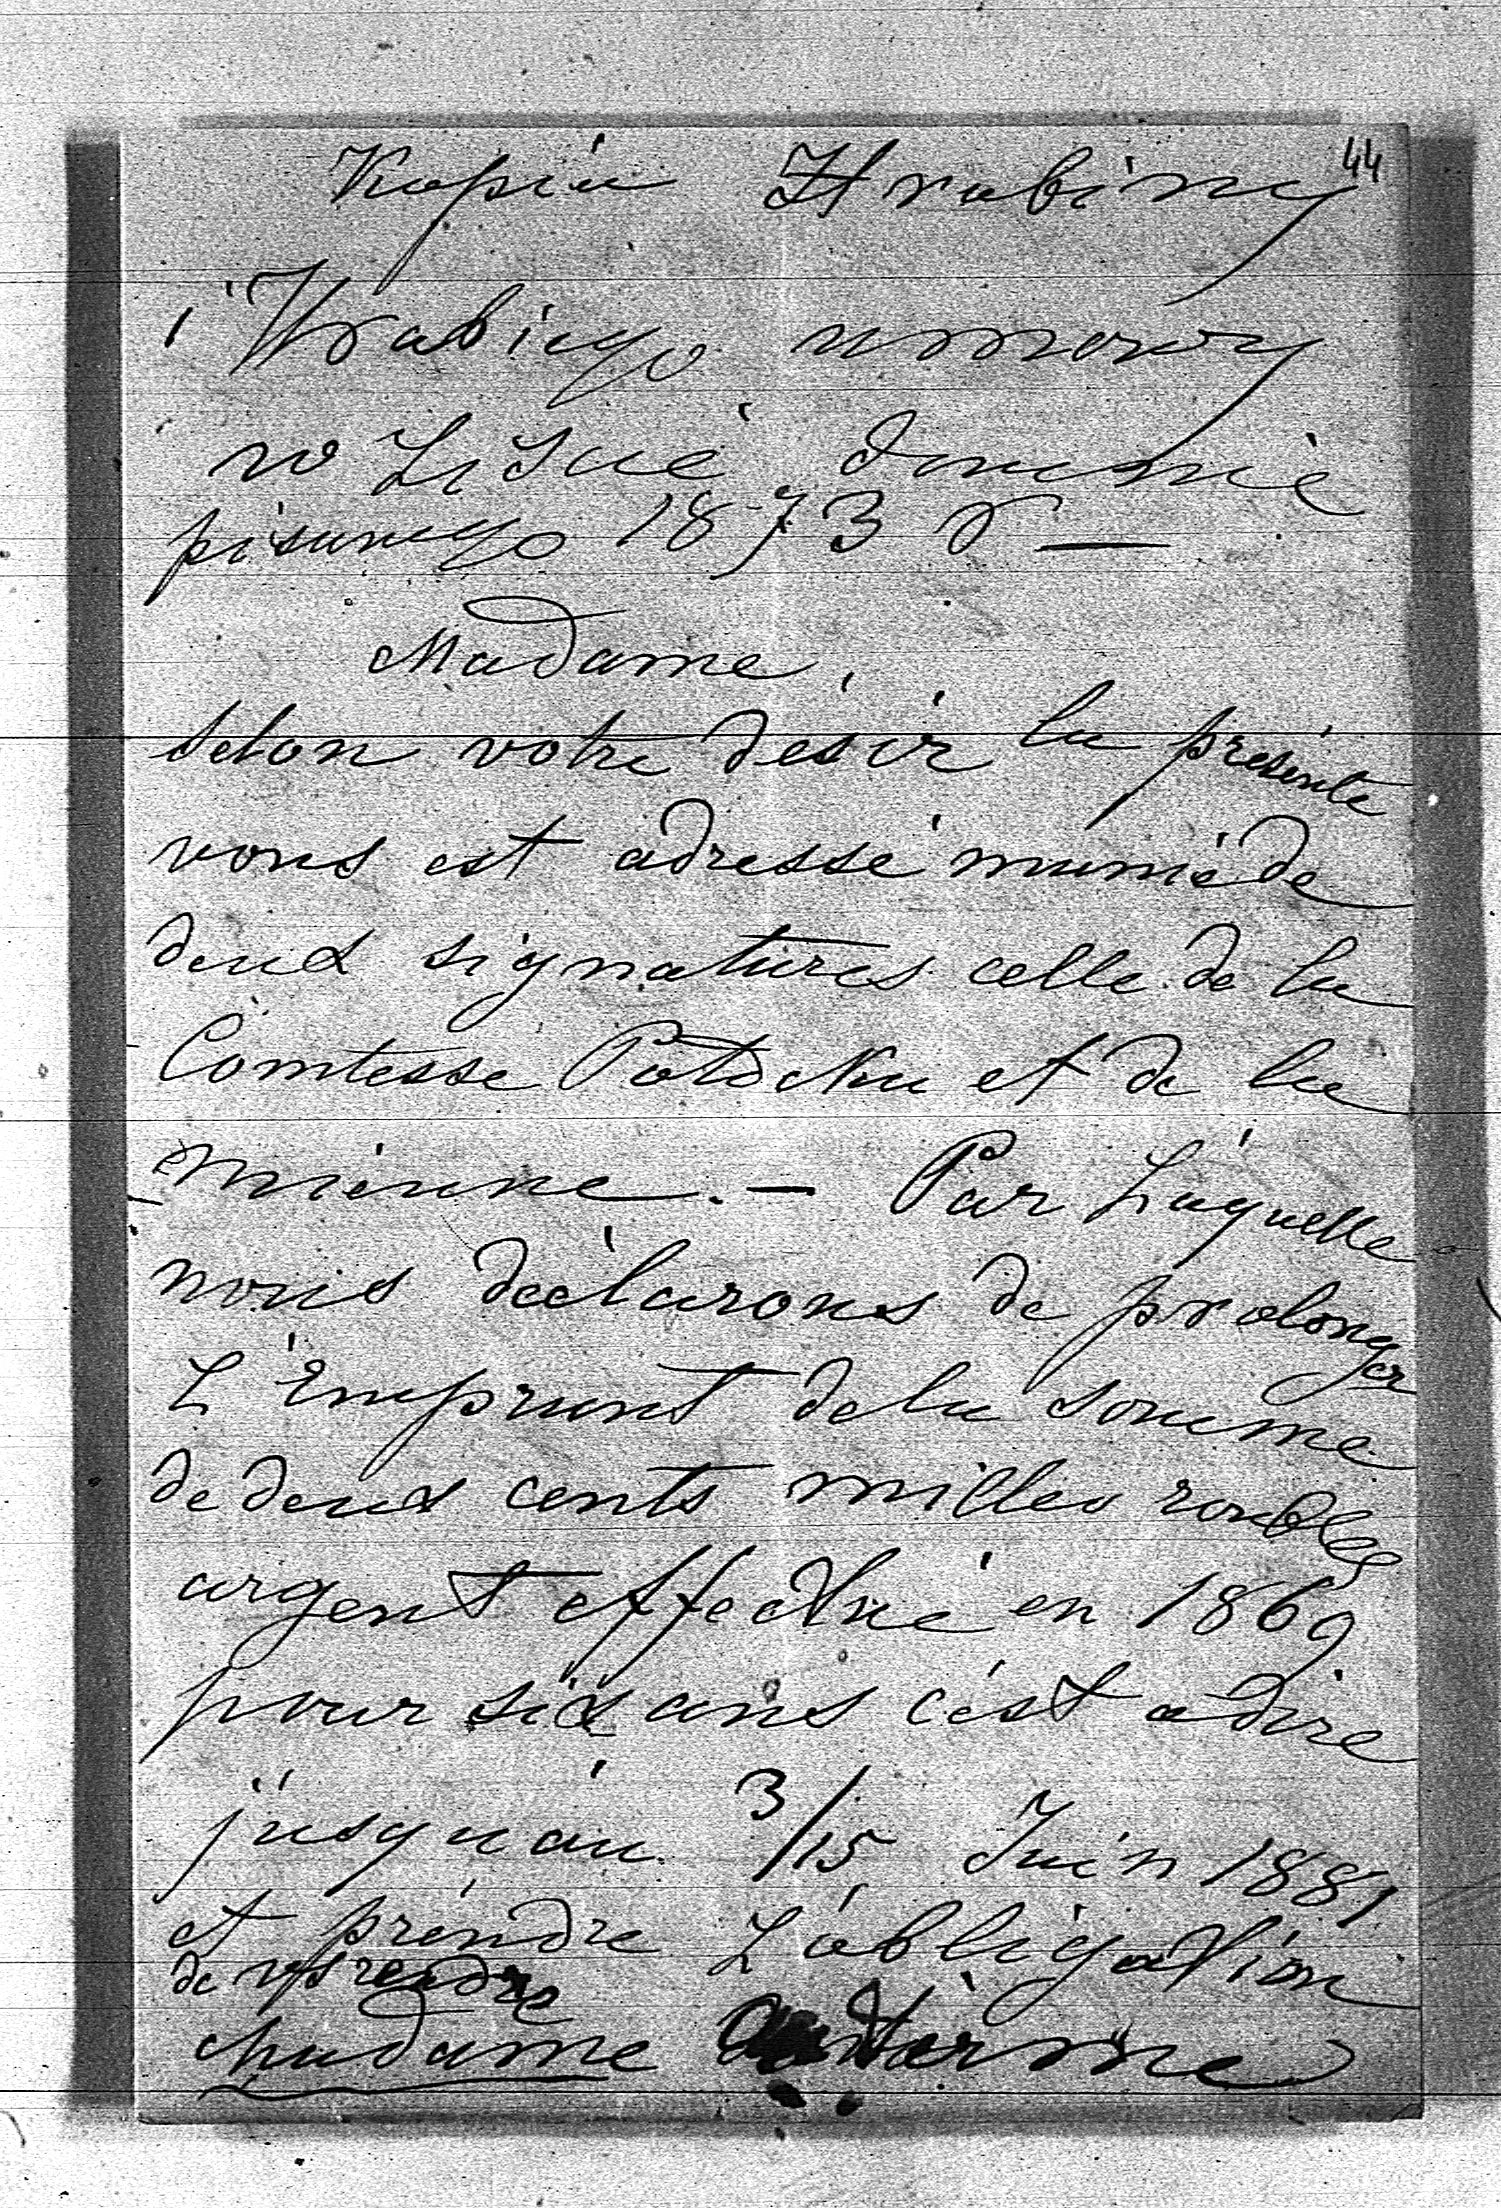 44
Kopia Hrabiny
i Hrabiego umowy
w Liście do mnie
pisanego 1873 r —
Madame,
selon votre desir la presente
vous est adressé munié de
deux signatures celle de la
Comtesse Potocka et de la
mienne. — Par Laquelle
nous déclarons de prolonger
L'Emprunt de la somme
de deux cents milles roubles
argent effectué en 1869
pour six ans c'est adire
jusqu'au 3/15 Juin 1881
et prendre L'obligation
de rendre
Madame terme